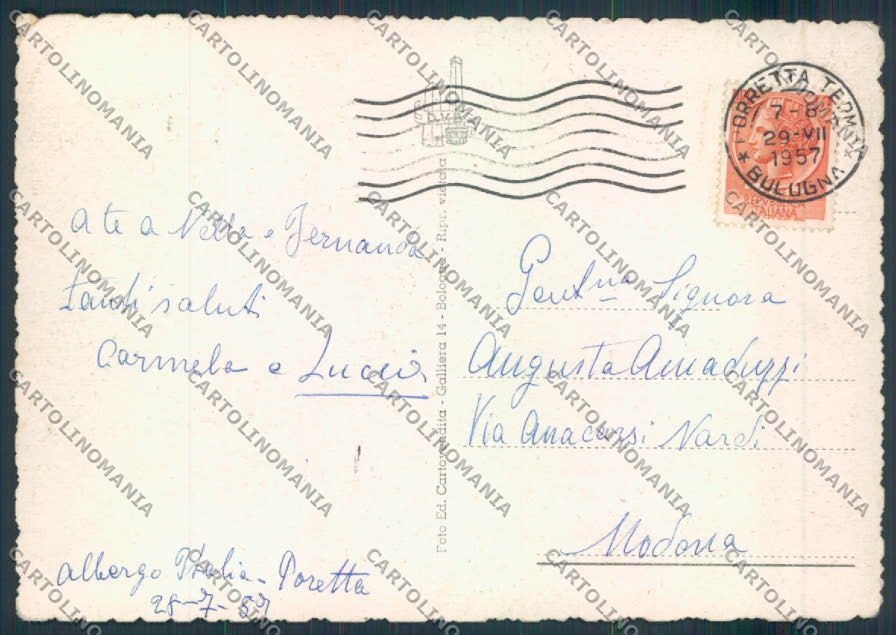 a te a Nella e Fernanda
tanti saluti
Carmela e Lucia
Albergo Italia - Poretta
28-7-57
Foto Ed. Cartovendita - Galliera 14 - Bologna - Ripr. vietata
PORRETTA TERME
7-8
29-VII
1957
* BOLOGNA *
REPVBBLICA
ITALIANA
Gent.ma Signora
Augusta Amaduzzi
Via Anacarsi Nardi
Modena
CARTOLINOMANIA